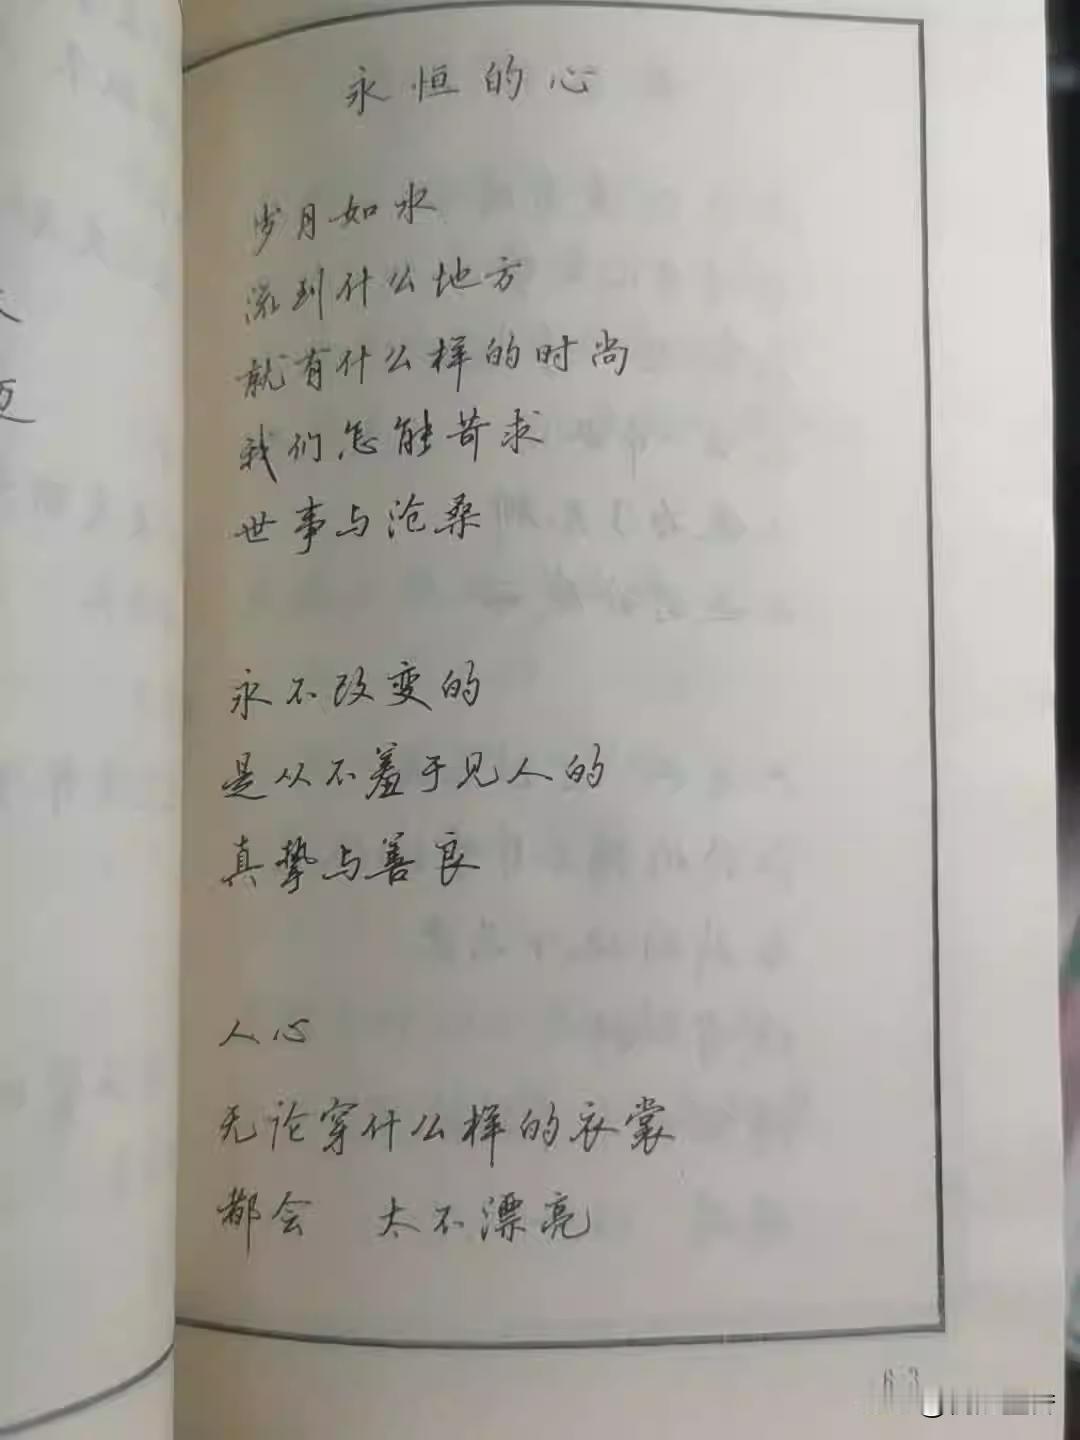 永恒的心
岁月如水
流到什么地方
就有什么样的时尚
我们怎能苛求
世事与沧桑
永不改变的
是从不羞于见人的
真挚与善良
人心
无论穿什么样的衣裳
都会 太不漂亮
63